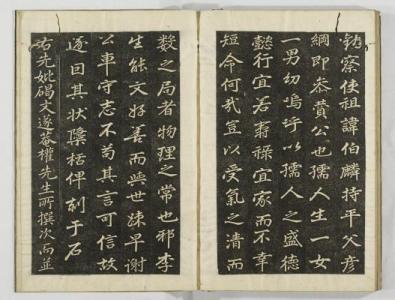 察使祖諱伯麟持平父彥
綱即恭贊公也孺人生一女
一男幼嗚呼以孺人之盛德
懿行宜若壽祿宜家而不幸
短命何哉豈以受氣之清而
數之局者物理之常也邪李
生能文好善而與世踈早謝
公車守志不苟其言可信故
遂因其狀檃栝俾刻于石
右先妣碣文遂菴權先生所撰次而並